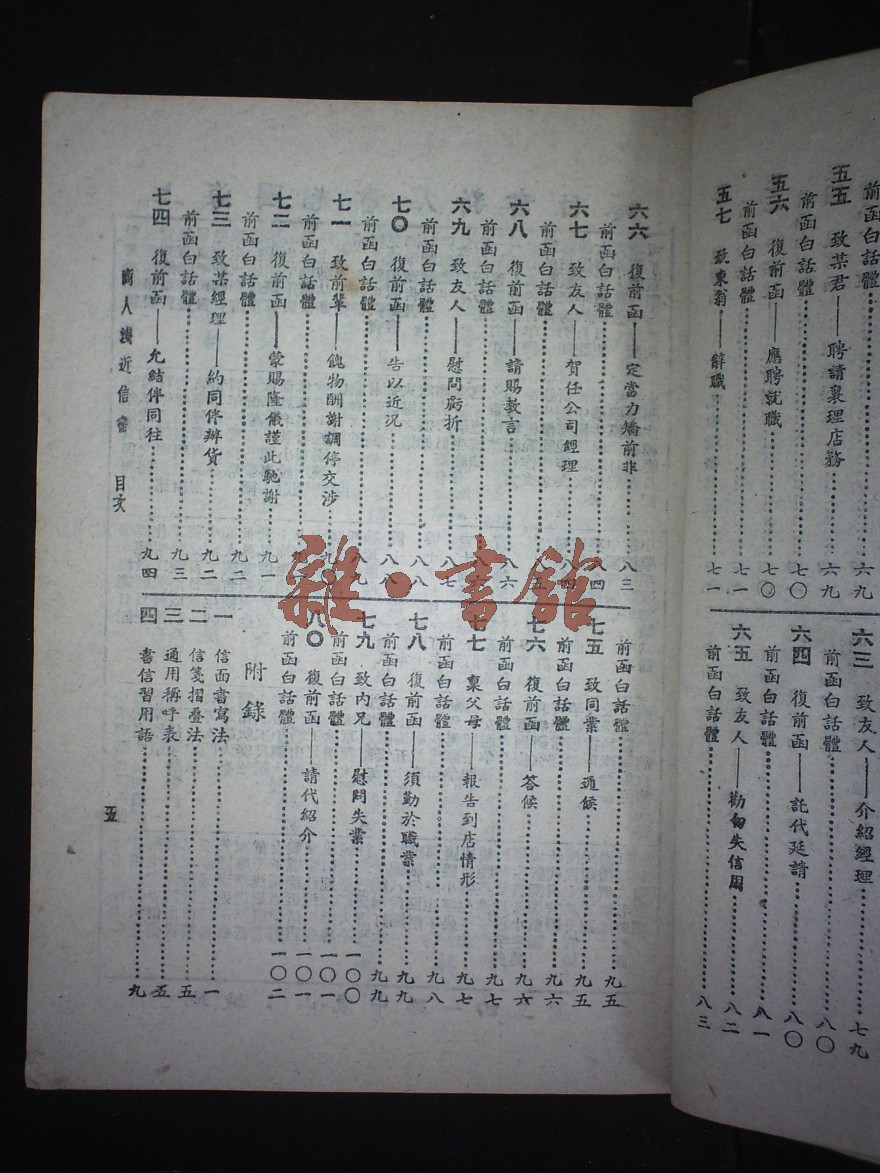 六九
五五 致某君——聘請襄理店務……六九
前函白話體……七〇
五六 復前函——應聘就職……七〇
前函白話體……七一
五七 致東翁——辭職……七一
六三 致友人——介紹經理……七九
前函白話體……八〇
六四 復前函——託代延請……八〇
前函白話體……八一
六五 致友人——勸勿失信用……八二
前函白話體……八三
六六 復前函——定當力矯前非……八三
前函白話體……八四
六七 致友人——賀任公司經理……八四
前函白話體……八五
六八 復前函——請賜教言……八六
前函白話體……八六
六九 致友人——慰問虧折……八七
前函白話體……八八
七〇 復前函——告以近況……八八
前函白話體……八九
七一 致前輩——餽物酬謝調停交涉……九〇
前函白話體……九一
七二 復前函——蒙賜隆儀謹此馳謝……九一
前函白話體……九二
七三 致某經理——約同伴辦貨……九二
前函白話體……九三
七四 復前函——允結伴同往……九四
前函白話體……九五
七五 致同業——通候……九五
前函白話體……九六
七六 復前函——答候……九六
前函白話體……九七
七七 稟父母——報告到店情形……九七
前函白話體……九八
七八 復前函——須勤於職業……九九
前函白話體……九九
七九 致內兄——慰問失業……一〇〇
前函白話體……一〇一
八〇 復前函——請代紹介……一〇一
前函白話體……一〇二
附錄
一 信面書寫法……一
二 信箋摺疊法……五
三 通用稱呼表……五
四 書信習用語……九
商人淺近信書 目次
五
雜·書館